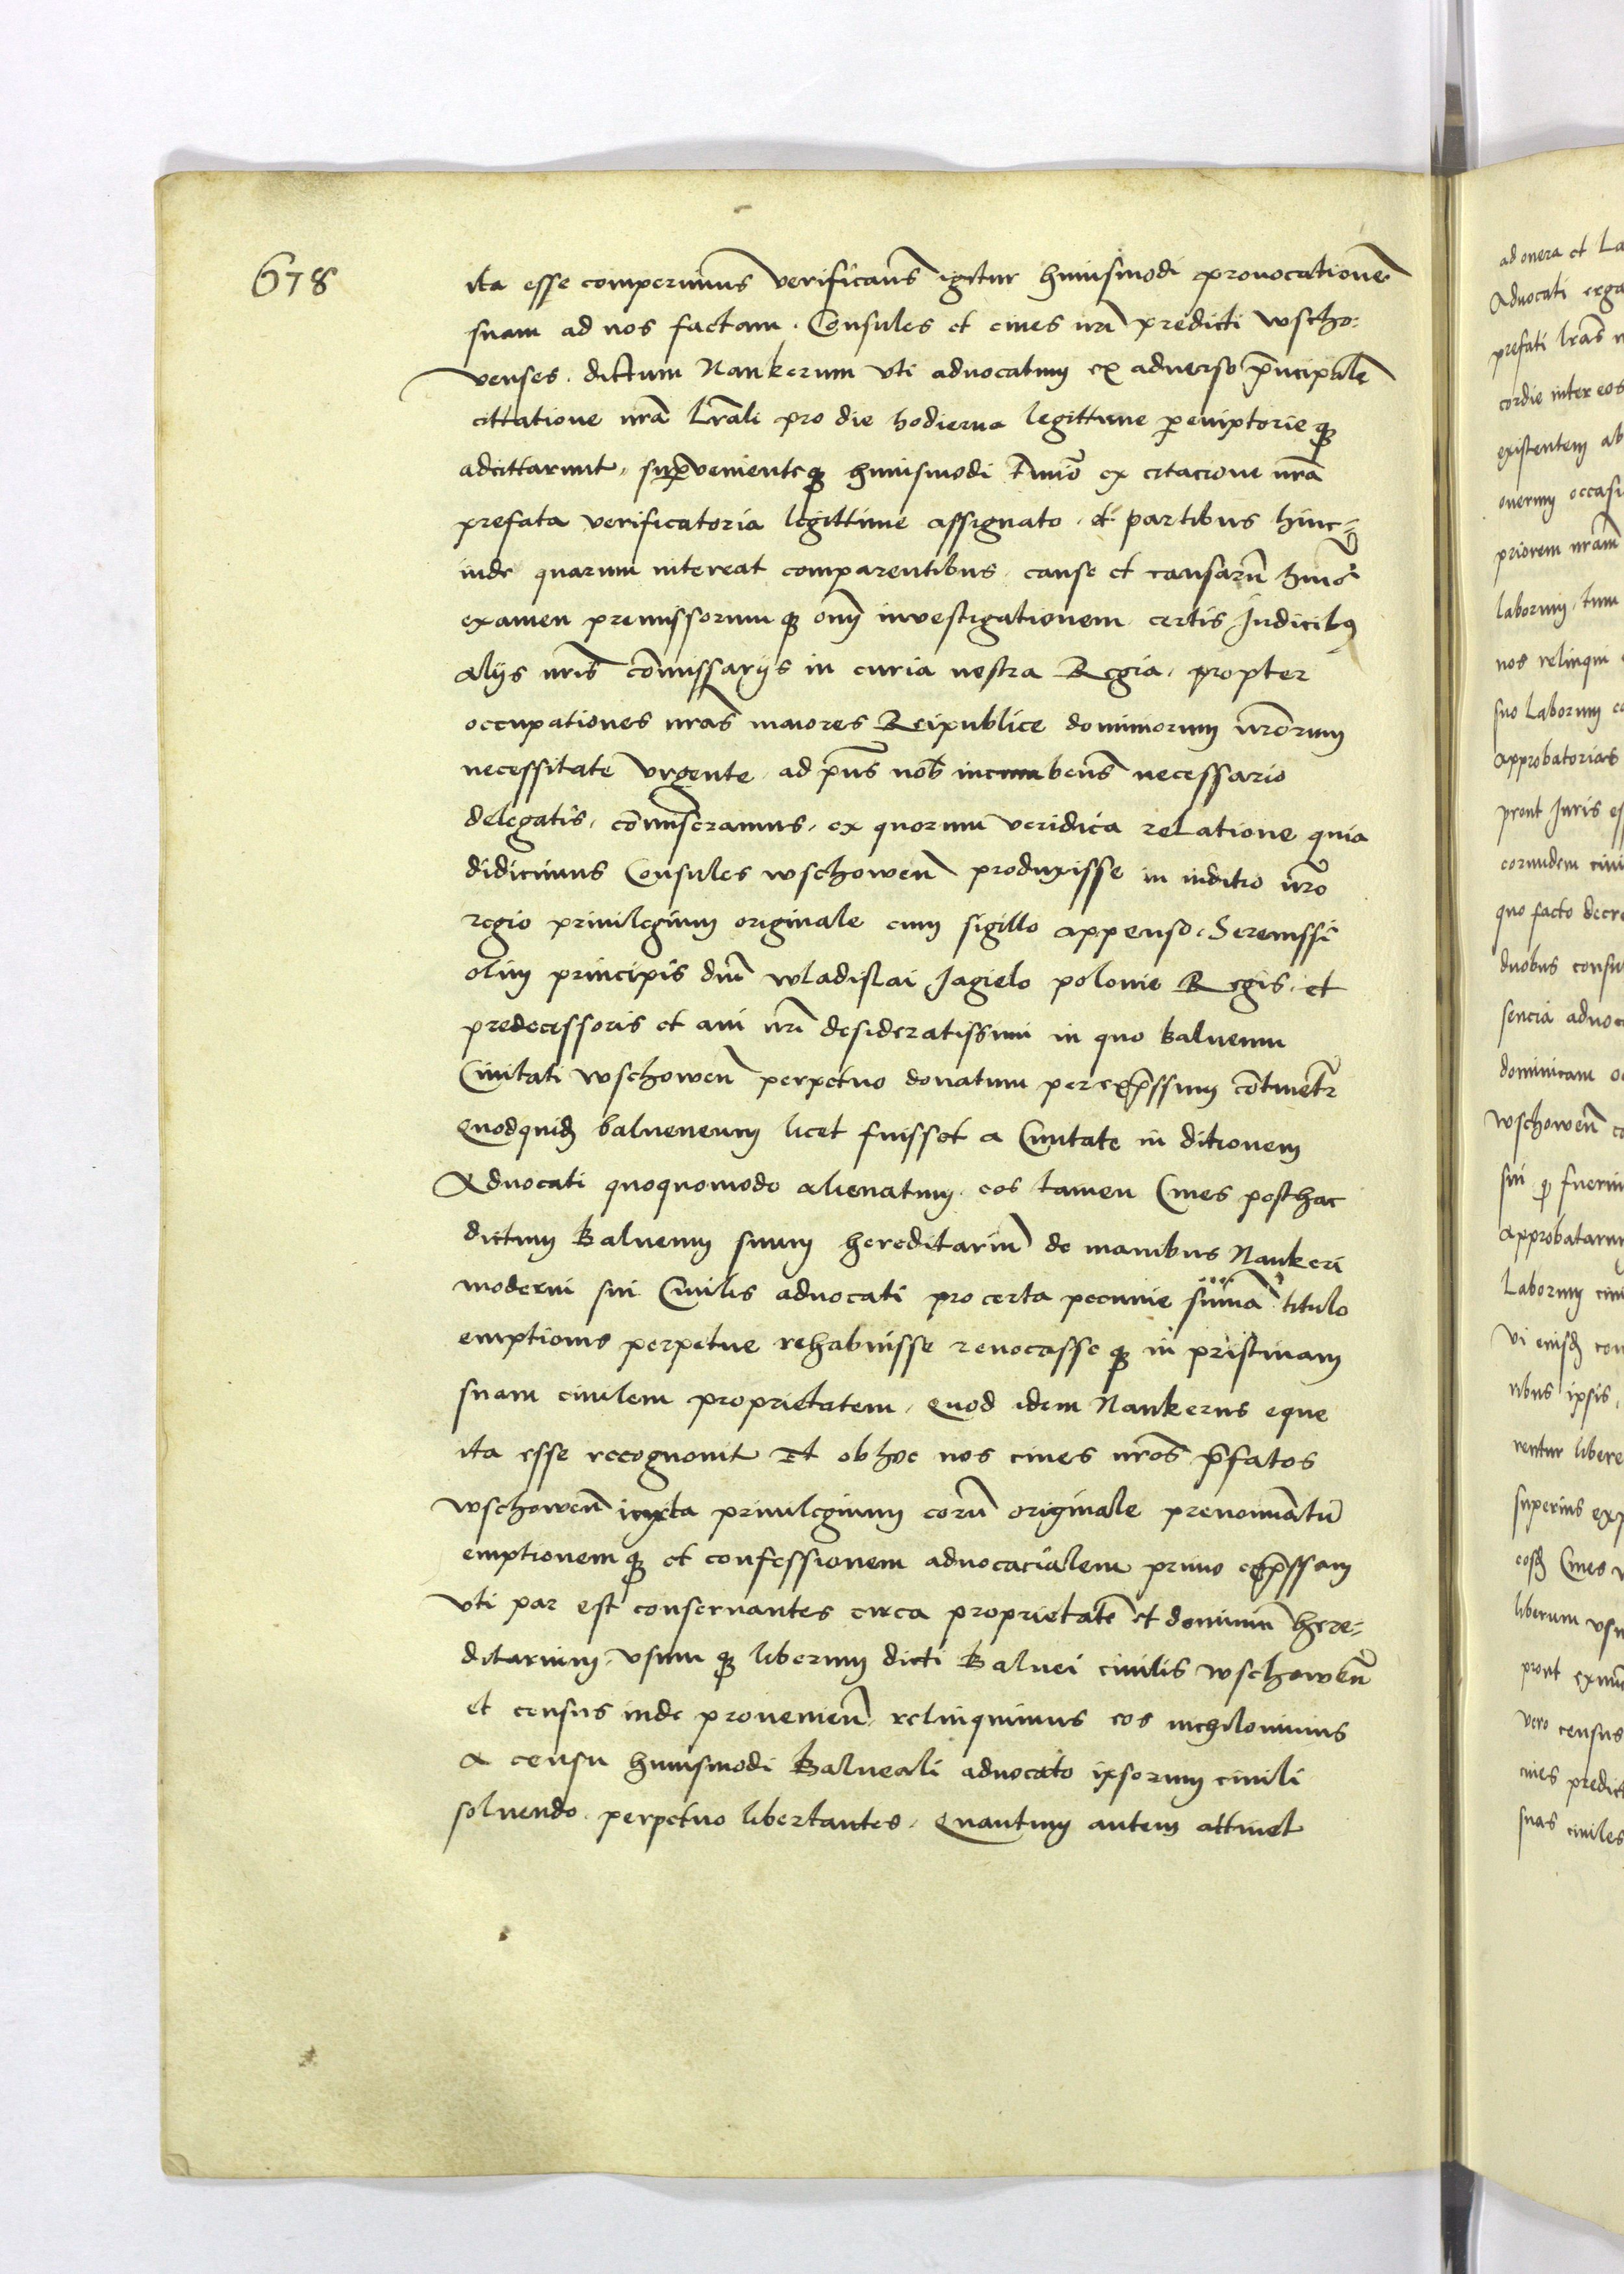 678
ita esse comperimus verificans igitur huiusmodi provocatione
suam ad nos factam. Consules et cives nri predicti wscho:
venses. dictum Nankerum uti advocatum ex adverso principale
cittatione nra lrali pro die hodierna legittime peremptorieque
adcittarunt, supervenienteque huiusmodi termino ex citacione nra
prefata verificatoria legittime assignato. et partibus hinc
inde quarum intereat comparentibus. cause et causaru huius
examen premissorumque omnem investigationem certis Judicibus
aliis nris commissariis in curia nestra Regia, propter
occupationes nras maiores Reipublice dominorum nrorum
necessitate urgente, ad pns nob incumbens necessario
delegatis, commiseramus, ex quorum veridica relatione quia
didicimus Consules wschowen produxisse in iuditio nro
regio privilegium originale cum sigillo appenso. Serenissi
olim principis dni wladislai Jagielo polonie Regis, et
predecessoris et avi nri desideratissimi in quo balneum
Civitati wschowen perpetuo donatum per expressum continetr
Quodquidem balneneum licet fuisset a Civitate in ditionem
Advocati quoquomodo alienatum. eos tamen Cives posthac
dictum Balneum suum hereditariu de manibus Nankeri
moderni sui Civilis advocati pro certa pecunie suma titulo
emptionis perpetue rehabuisse revocasseque in pristinam
suam civilem proprietatem, Quod idem Nankerus eque
ita esse recognovit Et ob hoc nos cives nros prefatos
wschowen iuxta privilegium coru originale prenominatu
emptionemque et confessionem advocacialem primo expressam
uti par est conservantes circa proprietate et dominiu here:
ditarium, usumque liberum dicti Balnei civilis wschowen
et census inde provenien, relinquimus eos nichilominus
a censu huiusmodi Balneali advocato ipsorum civili
solvendo. perpetuo libertantes. Quantum autem attinet
ad onera et La
Advocati erga
prefati lras n
cordie inter eos
existentem ab
onerum occasi
priorem nram
laborum, tum
nos relinqui
suo Laborum
approbatorias
prout Juris es
eorundem civi
quo facto decre
duobus consu
sencia advoc
dominicam
wschowen
sui fuerin
approbatarum
Laborum civi
vi eiusdem con
ribus ipsis,
rentur libere
superius exp
eosdem Cives
liberum usu
prout exnu
vero census
cives predict
suas civiles